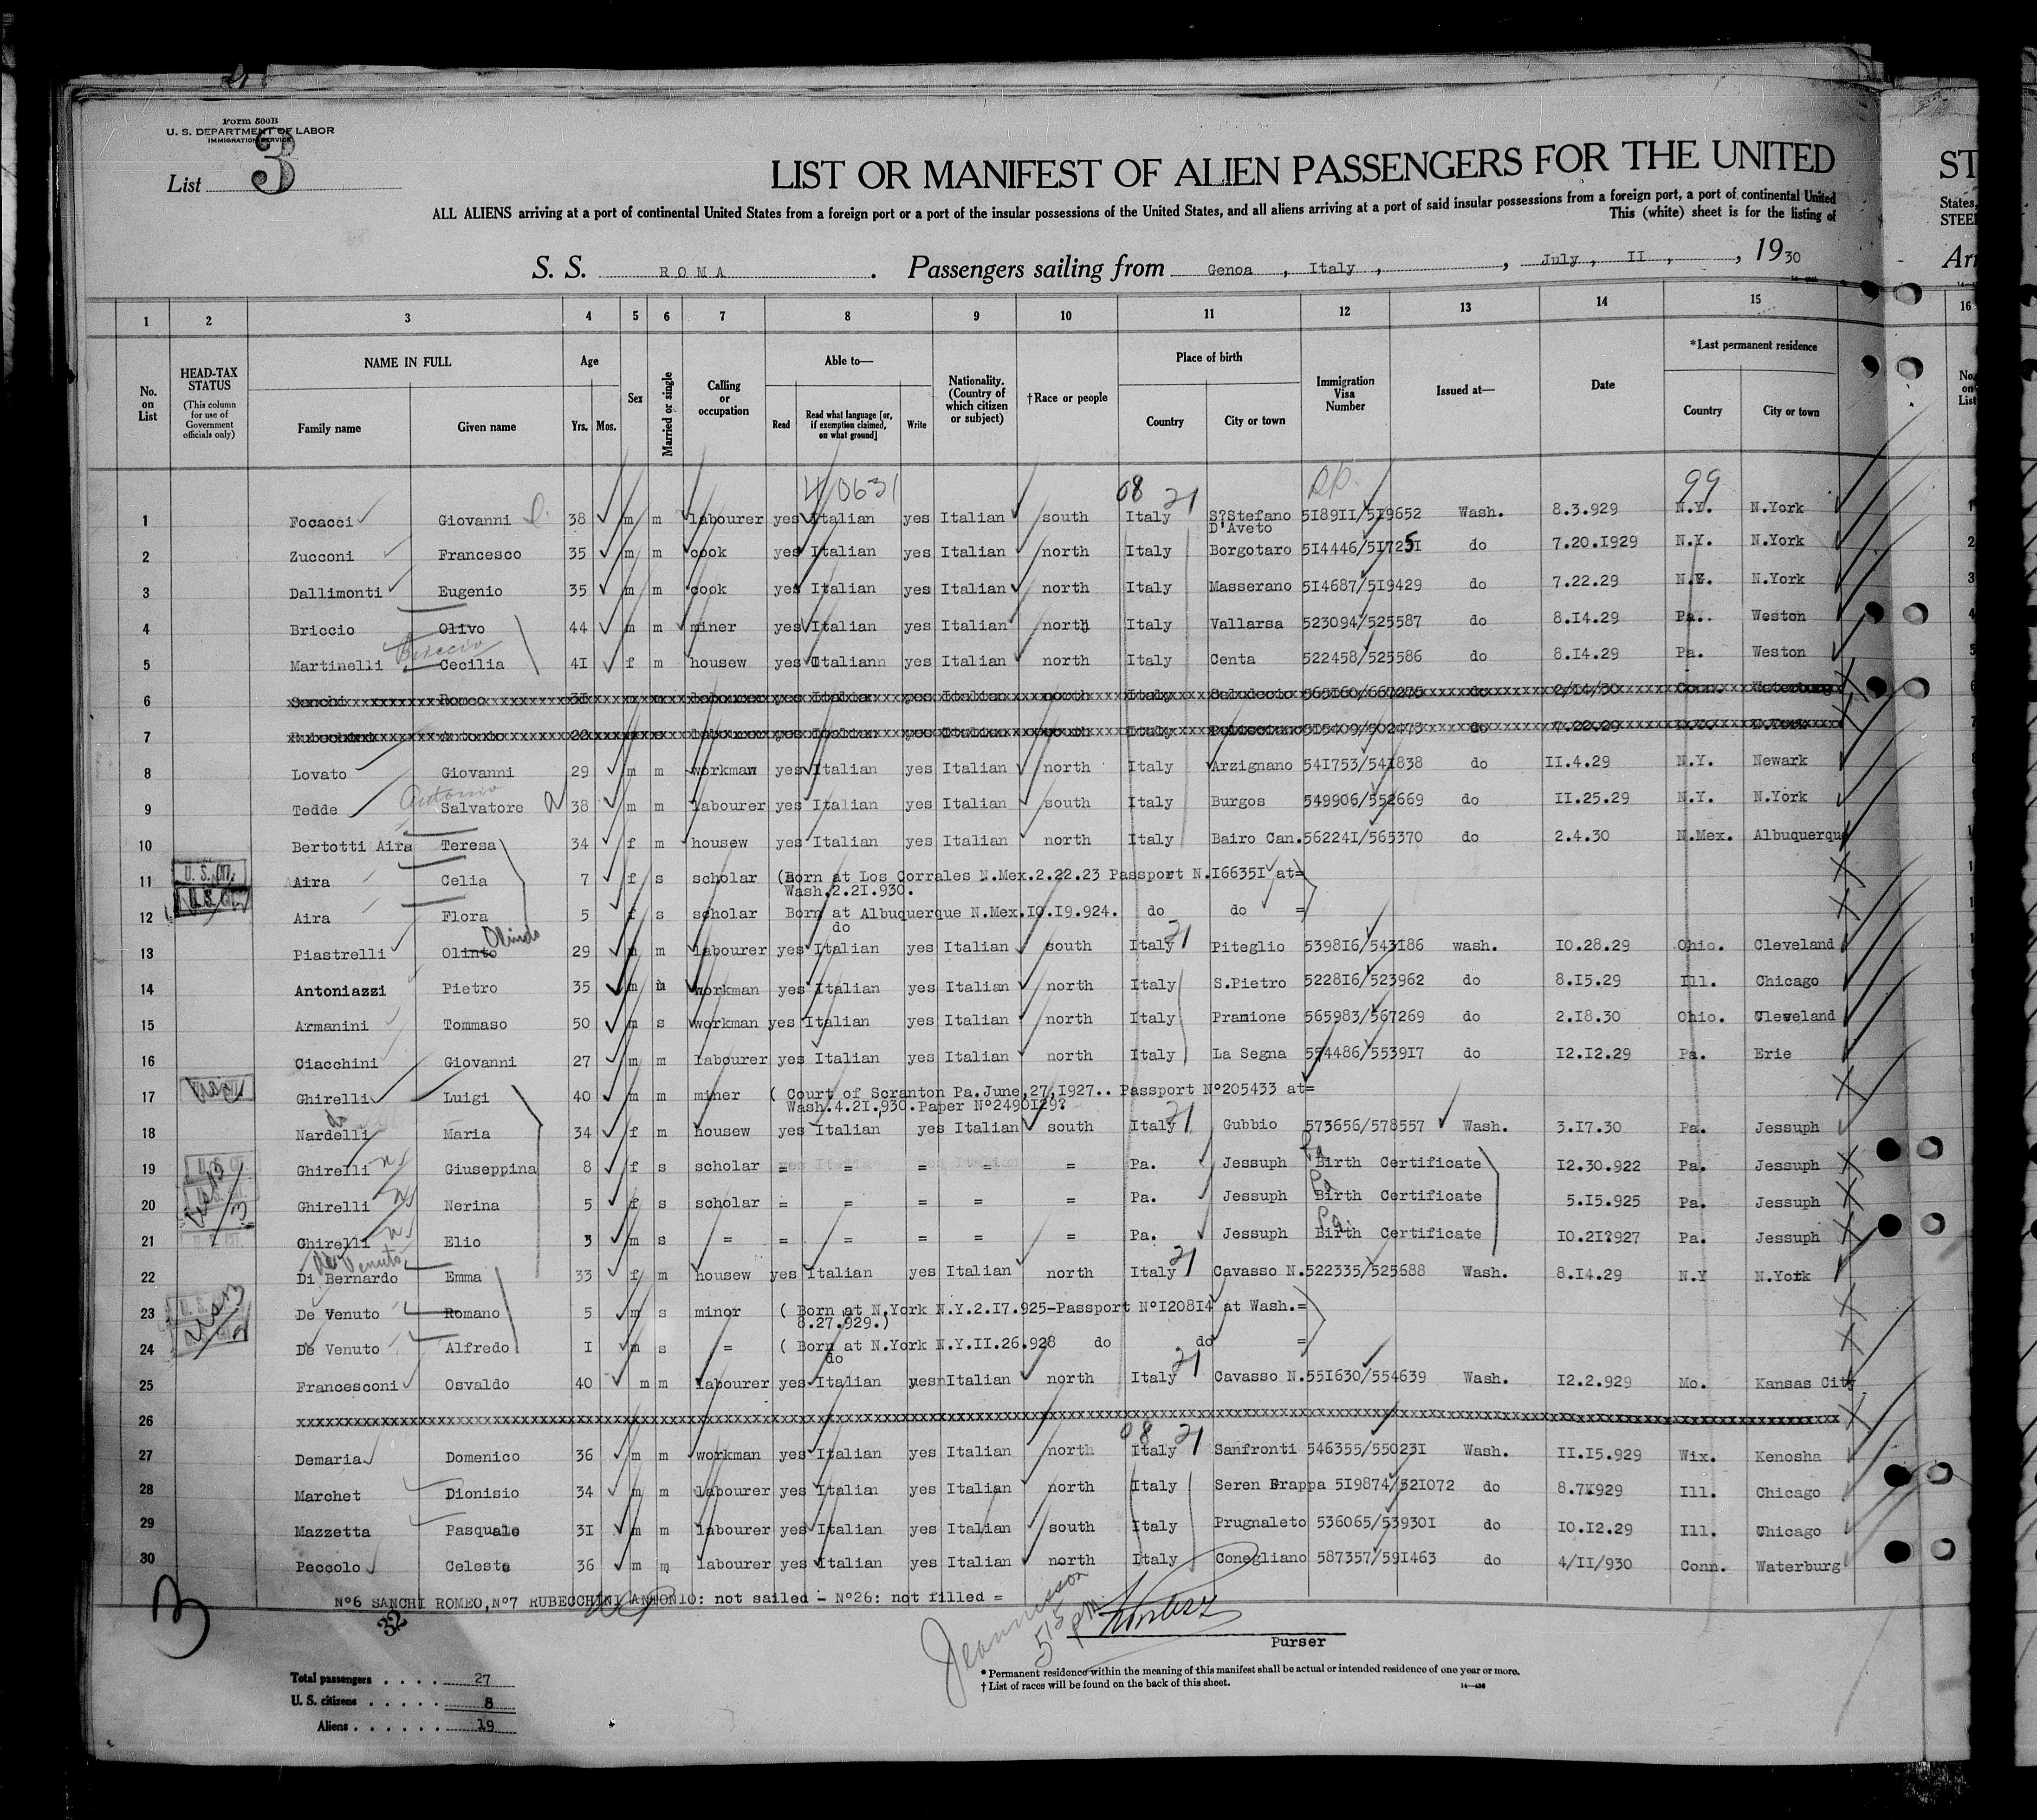 Form 500B
U. S. DEPARTMENT OF LABOR
IMMIGRATION SERVICE
List 3
LIST OR MANIFEST OF ALIEN PASSENGERS FOR THE UNITED
ST
ALL ALIENS arriving at a port of continental United States from a foreign port or a port of the insular possessions of the United States, and all aliens arriving at a port of said insular possessions from a foreign port, a port of continental United
States,
This (white) sheet is for the listing of
S. S. ROMA. Passengers sailing from Genoa, Italy, July, II, 1930
1 2 3 4 5 6 7 8 9 10 11 12 13 14 15 16
No. on List
HEAD-TAX STATUS (This column for use of Government officials only)
NAME IN FULL
Family name Given name
Age Yrs. Mos.
Sex
Married or single
Calling or occupation
Able to— Read Read what language [or, if exemption claimed, on what ground] Write
Nationality. (Country of which citizen or subject)
†Race or people
Place of birth Country City or town
Immigration Visa Number
Issued at—
Date
*Last permanent residence Country City or town
No. on List
40631 08 21 99
1 Focacci Giovanni 38 m m labourer yes Italian yes Italian south Italy S?Stefano D'Aveto 5I89II/5I9652 Wash. 8.3.929 N.Y. N.York
2 Zucconi Francesco 35 m m cook yes Italian yes Italian north Italy Borgotaro 5I4446/5I725I do 7.20.I929 N.Y. N.York
3 Dallimonti Eugenio 35 m m cook yes Italian yes Italian north Italy Masserano 5I4687/5I9429 do 7.22.29 N.Y. N.York
4 Briccio Olivo 44 m m miner yes Italian yes Italian north Italy Vallarsa 523094/525587 do 8.I4.29 Pa.. Weston
Briccio
5 Martinelli Cecilia 4I f m housew yes Italiann yes Italian north Italy Centa 522458/525586 do 8.I4.29 Pa. Weston
6 Sanchi Romeo 3I m m labourer yes Italian yes Italian north Italy 565I60/667275 do 2/I4/30 Conn. Waterburg
7 Rubecchini Antonio 22 labourer yes Italian yes Italian south Italy 5I5409/502473 do 7.22.29 N.York
8 Lovato Giovanni 29 m m workman yes Italian yes Italian north Italy Arzignano 54I753/54I838 do II.4.29 N.Y. Newark
Antonio
9 Tedde Salvatore 38 m m labourer yes Italian yes Italian south Italy Burgos 549906/552669 do II.25.29 N.Y. N.York
10 Bertotti Aira Teresa 34 f m housew yes Italian yes Italian north Italy Bairo Can. 56224I/565370 do 2.4.30 N.Mex. Albuquerque
U. S. CIT.
11 Aira Celia 7 f s scholar (Born at Los Corrales N.Mex.2.22.23 Passport N.I6635I at=
Wash.2.2I.930.
U. S. CIT.
12 Aira Flora 5 f s scholar Born at Albuquerque N.Mex.IO.I9.924. do do =
do
Olindo
13 Piastrelli Olinto 29 m m labourer yes Italian yes Italian south Italy 21 Piteglio 5398I6/543I86 wash. IO.28.29 Ohio. Cleveland
14 Antoniazzi Pietro 35 m m workman yes Italian yes Italian north Italy S.Pietro 5228I6/523962 do 8.I5.29 Ill. Chicago
15 Armanini Tommaso 50 m s workman yes Italian yes Italian north Italy Pramione 565983/567269 do 2.I8.30 Ohio. Cleveland
16 Ciacchini Giovanni 27 m m labourer yes Italian yes Italian north Italy La Segna 554486/5539I7 do I2.I2.29 Pa. Erie
17 Ghirelli Luigi 40 m m miner ( Court of Scranton Pa.June,27,I927.. Passport N°205433 at=
Wash.4.2I.930.Paper N°2490I29?
18 Nardelli Maria 34 f m housew yes Italian yes Italian south Italy 21 Gubbio 573656/578557 Wash. 3.I7.30 Pa. Jessuph
19 Ghirelli Giuseppina 8 f s scholar = = = = = Pa. Jessuph Pa Birth Certificate I2.30.922 Pa. Jessuph
20 Ghirelli Nerina 5 f s scholar = = = = = Pa. Jessuph Pa Birth Certificate 5.I5.925 Pa. Jessuph
21 Ghirelli Elio 3 m s = = = = = = Pa. Jessuph Pa. Birth Certificate IO.2I?927 Pa. Jessuph
de Venuto
22 Di Bernardo Emma 33 f m housew yes Italian yes Italian north Italy 21 Cavasso N. 522335/525688 Wash. 8.I4.29 N.Y N.York
23 De Venuto Romano 5 m s minor ( Born at N.York N.Y.2.I7.925-Passport N°I208I4 at Wash.=
8.27.929.)
24 De Venuto Alfredo I m s = ( Born at N.York N.Y.II.26.928 do do =
do
25 Francesconi Osvaldo 40 m m labourer yes Italian yes Italian north Italy 21 Cavasso N. 55I630/554639 Wash. I2.2.929 Mo. Kansas City
26 xxxxxxxxxxxxxxxxxxxxxxxxxxxxxxxx
27 Demaria Domenico 36 m m workman yes Italian yes Italian north 08 Italy 21 Sanfronti 546355/55023I Wash. II.I5.929 Wix. Kenosha
28 Marchet Dionisio 34 m m labourer yes Italian yes Italian north Italy Seren Grappa 5I9874/52I072 do 8.7.929 Ill. Chicago
29 Mazzetta Pasquale 3I m m labourer yes Italian yes Italian south Italy Prugnaleto 536065/53930I do IO.I2.29 Ill. Chicago
30 Peccolo Celeste 36 m m labourer yes Italian yes Italian north Italy Conegliano 587357/59I463 do 4/II/930 Conn. Waterburg
N°6 SANCHI ROMEO,N°7 RUBECCHINI ANTONIO: not sailed - N°26: not filled =
3
32
515 pm
Purser
Total passengers . . . . 27
U. S. citizens . . . . . 8
Aliens . . . . . . 19
* Permanent residence within the meaning of this manifest shall be actual or intended residence of one year or more.
† List of races will be found on the back of this sheet.